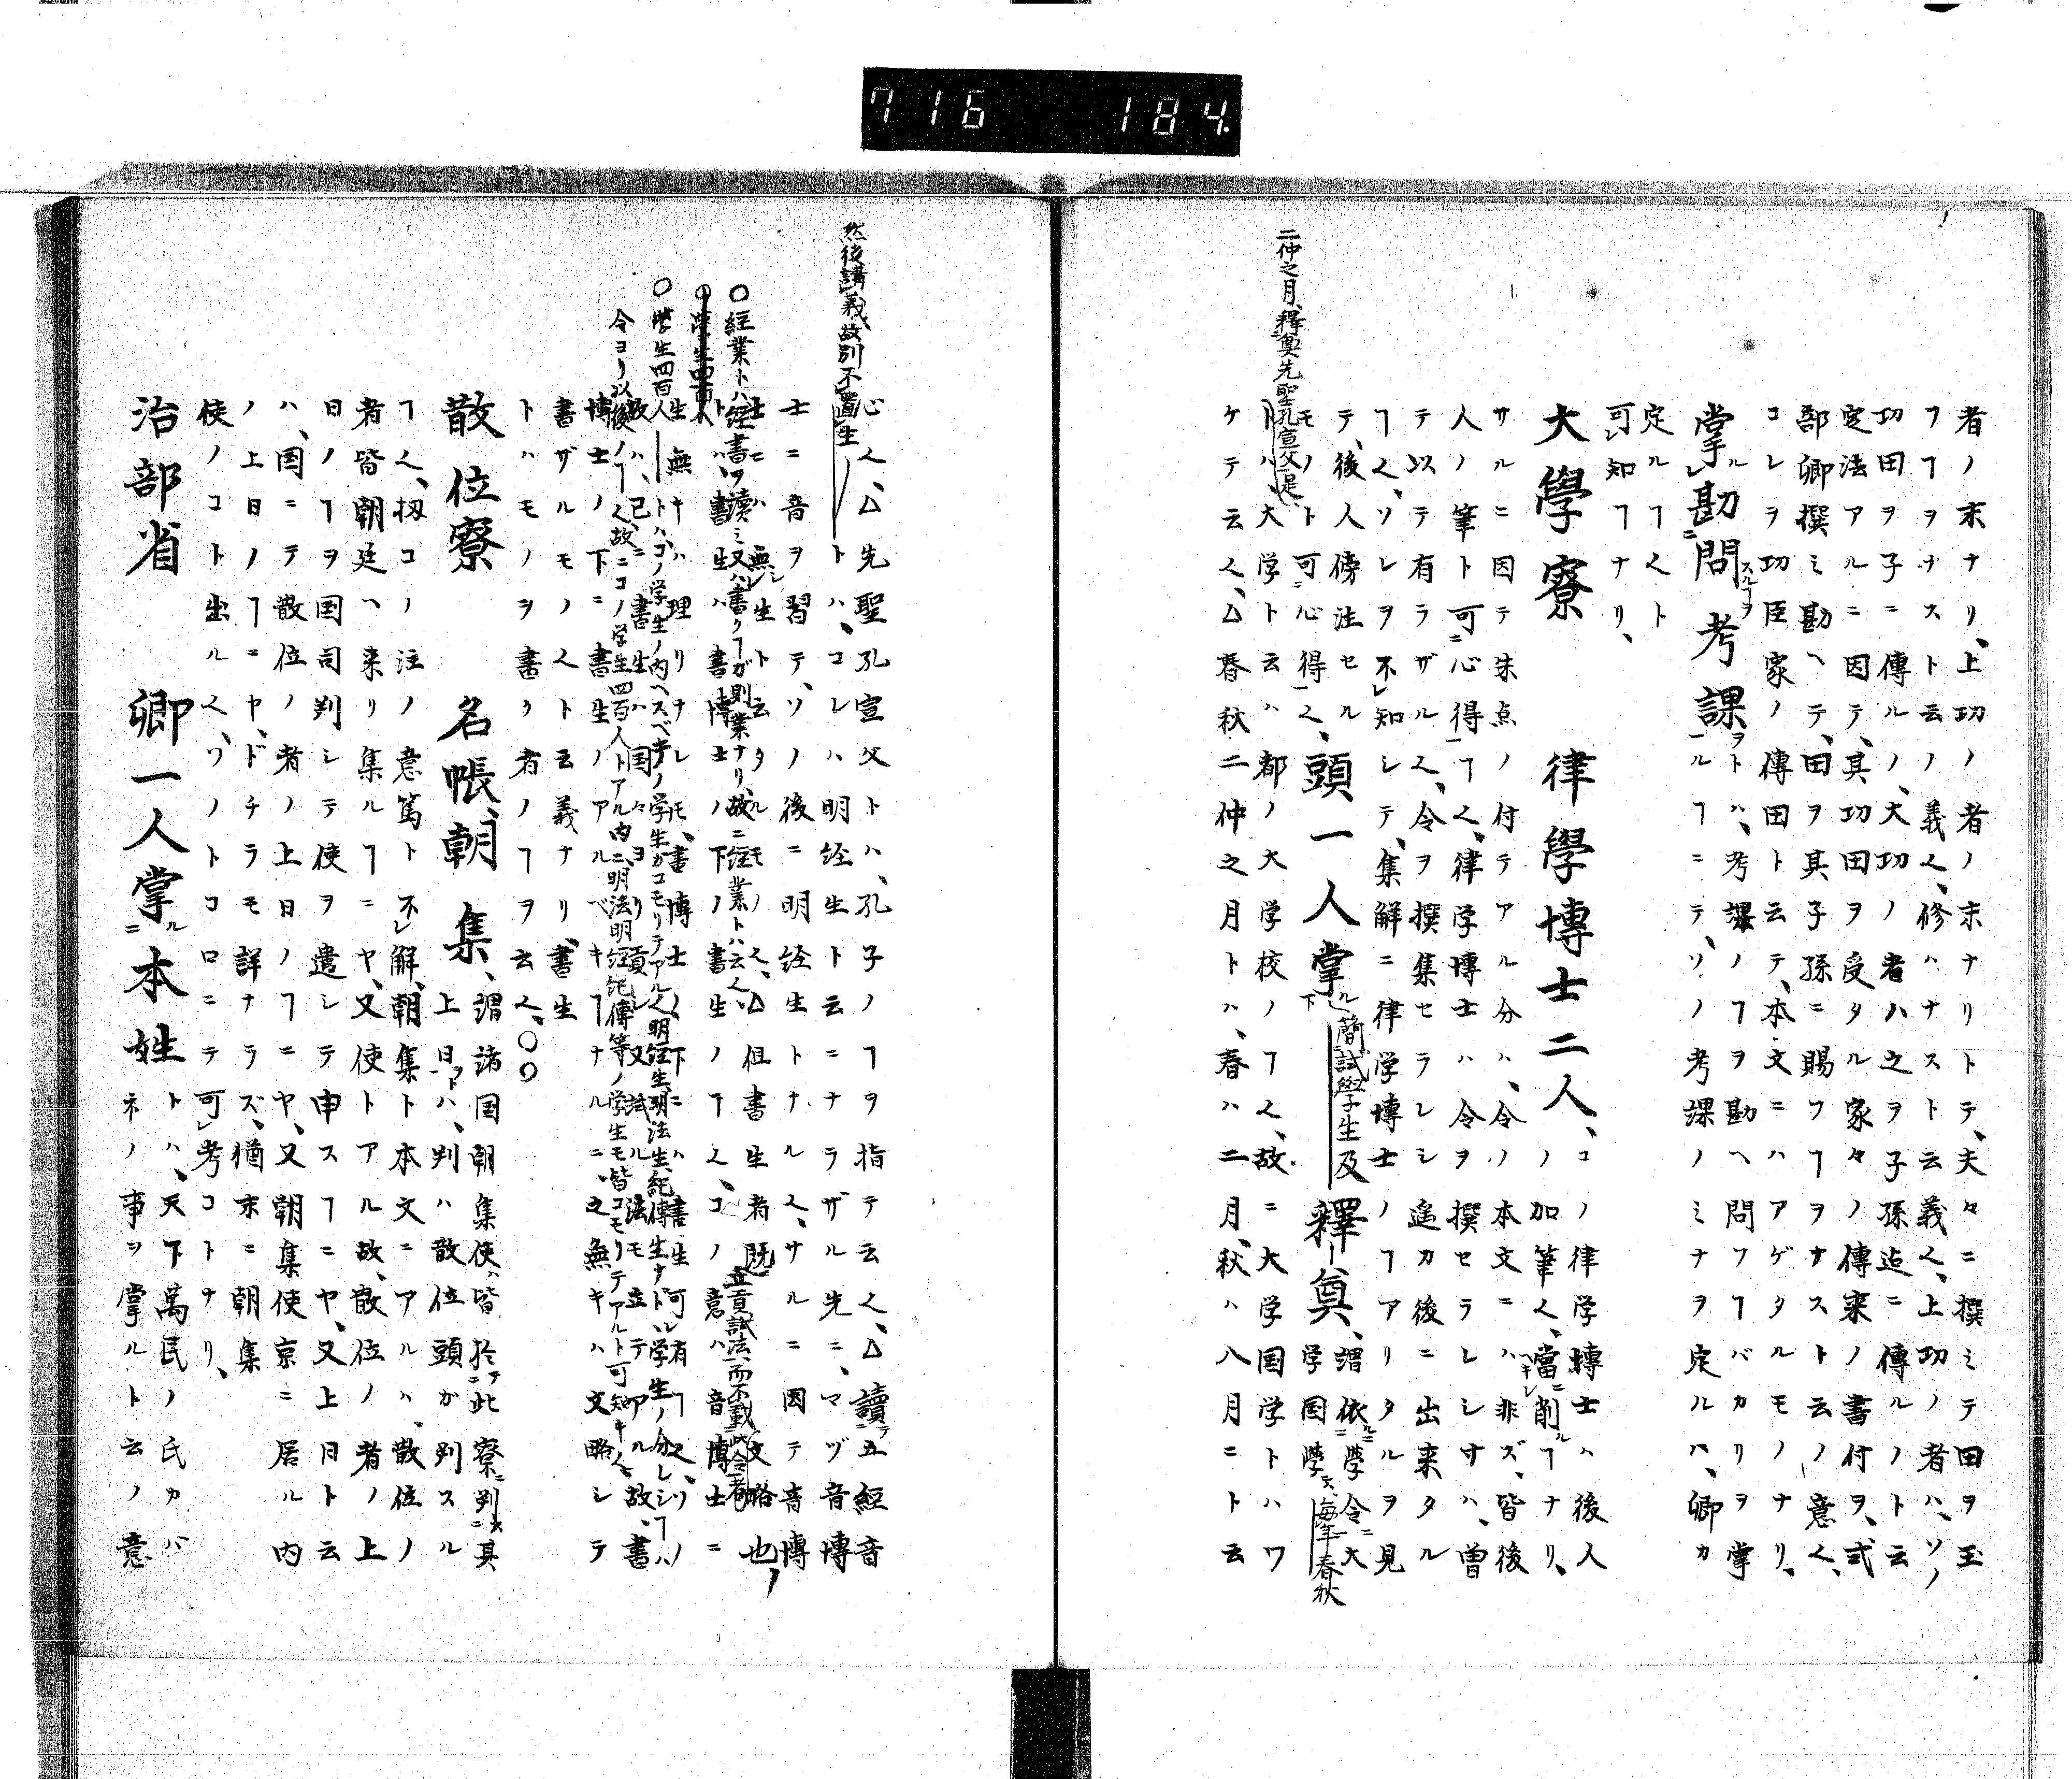 716 184.
者ノ末ナリ、上功ノ者ノ末ナリトテ、夫々ニ撰ミテ田ヲ玉
フヿヲナスト云ノ義乀、修ハナスト云義乀、上功ノ者ハ、ソノ
功田ヲ子ニ傳ルノ、大功ノ者ハ之ヲ子孫迠ニ傳ルノト云
定法アルニ因テ、其功田ヲ受タル家々ノ傳来ノ書付ヲ、式
部卿撰ミ勘ヘテ、田ヲ其子孫ニ賜フヿヲナスト云ノ意乀、
コレヲ功臣家ノ傳田ト云テ、本文ニハアゲタルモノナリ、
掌ル勘問スルヿヲ考課ヲトハ、考課ノヿヲ勘ヘ問フヿバカリヲ掌
ルヿニテ、ソノ考課ノミナヲ定ルハ、卿カ
定ルヿ乀ト
可レ知ヿナリ、
大學寮 律學博士二人、コノ律学博士ハ後人
ノ加筆乀、當ニ削ルヿナリ、
サルニ因テ朱点ノ付テアル分ハ、令ノ本文ニハ非ズ、皆後
人ノ筆ト可心得ヿ乀、律学博士ハ令ヲ撰セラレシサハ、曽
テ以テ有ラザル乀、令ヲ撰集セラレシ遥カ後ニ出来タル
ヿ乀、ソレヲ不レ知シテ、集解ニ律学博士ノヿアリタルヲ見
テ、後人傍注セル
モノト可心得乀、頭一人掌ル下簡試學生及釋奠、謂依學令大
学国學、毎年春秋
二仲之月、釋奠先聖孔宣父是、
トハ、大学ト云ハ都ノ大学校ノヿ乀、故ニ大学国学トハワ
ケテ云乀、△春秋二仲之月トハ、春ハ二月、秋ハ八月ニト云
然後講義、故別不置生
心乀、△先聖孔宣父トハ、孔子ノヿヲ指テ云乀、△讀五經音
トハ、コレハ明经生ト云ニナラザル先ニ、マヅ音博
士ニ音ヲ習テ、ソノ後ニ明经生トナル乀、サルニ因テ音博
士ニハ無レ生ト云タルモノ乀、△但書生者既立貢試法、而不載此令者、文略也、
○経業トハ经書ヲ讀ミ又ハ書クヿガ則業ナリ、故ニ经業トハ云乀、
トハ、書生ハ書博士ノ下ノ書生ノヿ乀、コノ意ハ音博士ニ
生無ナハ理リナレモ、書博士ノ下ニハ書生可レ有ヿ乀、ソノ
○学生四百人トハ、コノ学生ノ内ヘスベテノ学生ガコモリテアル乀、明经生、明法生、紀傳生ナド、学生ノ分レシヿハ
故ハ、已ニ書生ハ国々ヨリ貢シ、又試ル法モ立テアル故、書
令ヨリ以後ノヿ乀、故ニコノ学生四百人トアル内ニ、明法明经紀傳等ノ学生モ皆コモリテアルト可知キ乀、
博士ノ下ニ書生ノアルベキヿナルニ、之無キハ文略シテ
書ザルモノ乀ト云義ナリ、書生
トハモノヲ書ク者ノヿヲ云乀、○○
散位寮 名帳、朝集、謂諸国朝集使、皆於此寮判其
上日ヲトハ、判ハ散位頭ガ判スル
ヿ乀、扨コノ注ノ意篤ト不レ解、朝集ト本文ニアルハ、散位ノ
者皆朝廷ヘ来リ集ルヿニヤ、又使トアル故、散位ノ者ノ上
日ノヿヲ国司判シテ使ヲ遣シテ申スヿニヤ、又上日ト云
ハ、国ニテ散位ノ者ノ上日ノヿニヤ、又朝集使京ニ居ル内
ノ上日ノヿニヤ、ドチラモ詳ナラズ、猶末ニ朝集
使ノコト出ル乀、ソノトコロニテ可レ考コトナリ、
治部省 卿一人掌ル本姓トハ、天下萬民ノ氏カバ
ネノ事ヲ掌ルト云ノ意